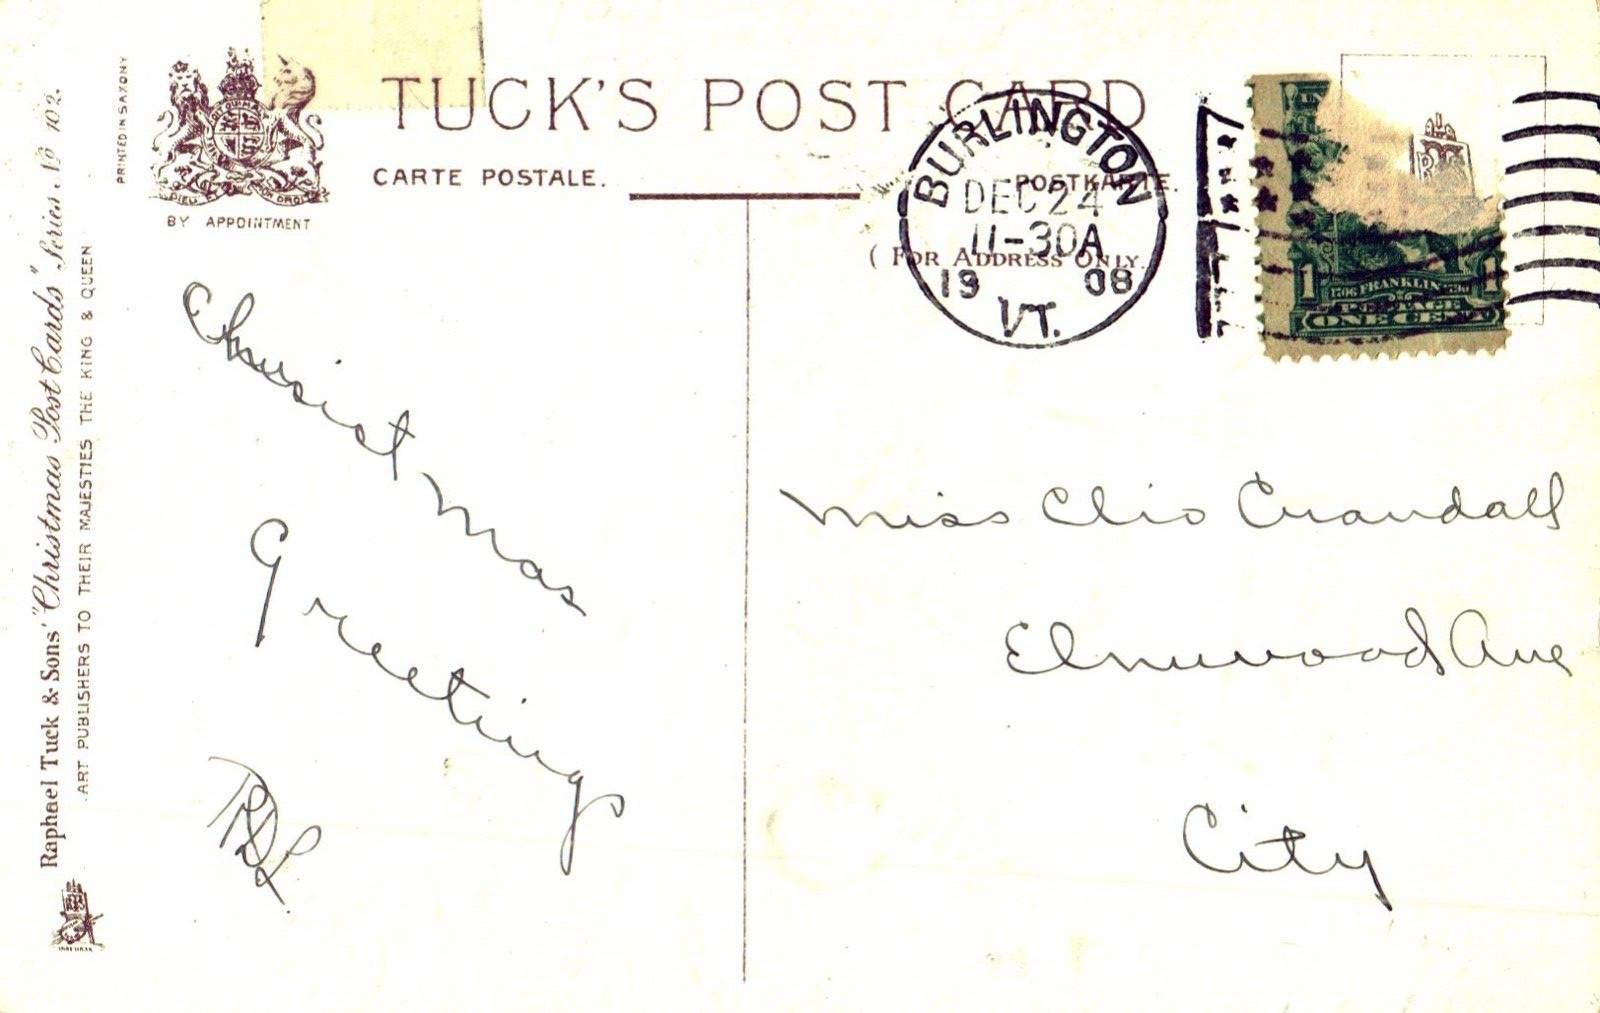 TUCK'S POST CARD
CARTE POSTALE.
POSTKARTE.
(FOR ADDRESS ONLY.
BY APPOINTMENT
PRINTED IN SAXONY
Raphael Tuck & Sons' "Christmas Post Cards" Series No 102.
ART PUBLISHERS TO THEIR MAJESTIES THE KING & QUEEN
BURLINGTON
DEC 24
11-30A
19 08
VT.
1 1706 FRANKLIN 1
POSTAGE
ONE CENT
Christmas
Greetings
RDL
Miss Clio Crandall
Elmwood Ave
City